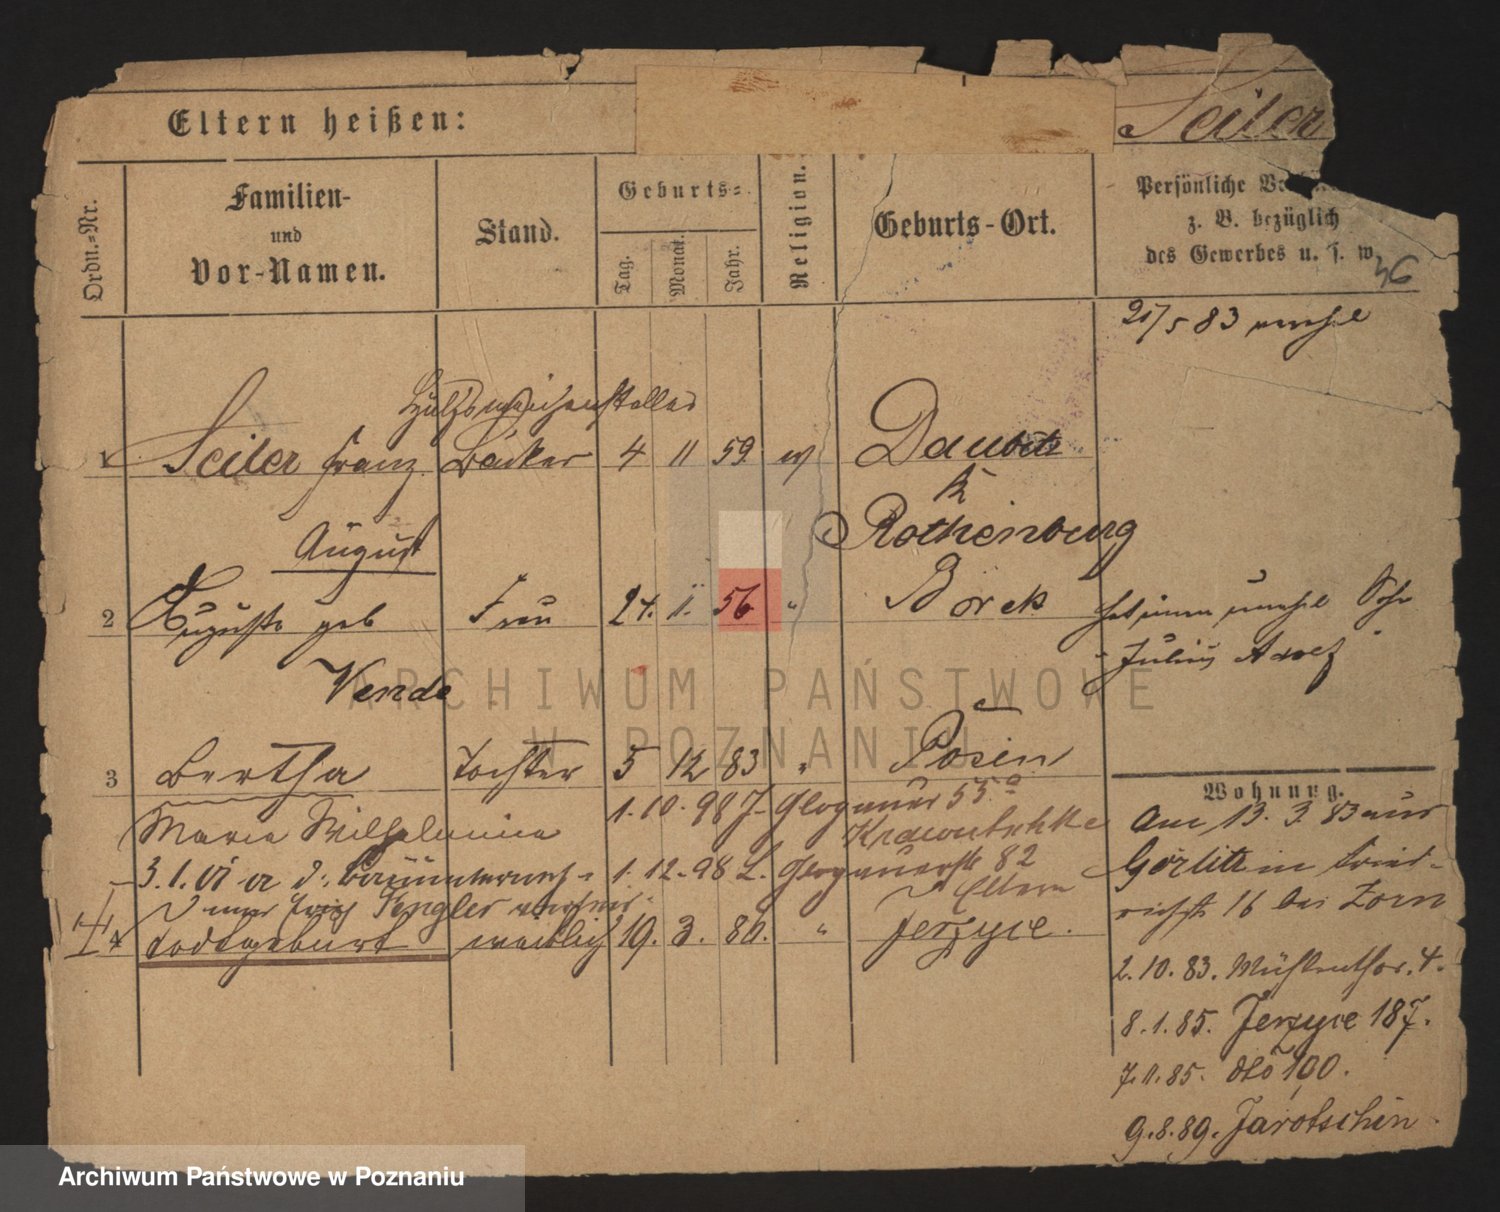 Eltern heißen:
Seiler
Ordn.-Nr.
Familien-
und
Vor-Namen.
Stand.
Geburts-
Tag.
Monat.
Jahr.
Religion.
Geburts-Ort.
Persönliche
z. B. bezüglich
des Gewerbes u. s. w.
36
21/5 83
Hülfsweichensteller
1 Seiler Franz Bäcker 4 11 59 Daubitz
K
August Rothenburg
2 Auguste geb Frau 24. 11. 56 " Borek
Julius
Vende
3 Bertha Tochter 5 12 83 " Posen
1. 10. 98 J. Glogauer 55a
Maria Wilhelmina
3. 1. 01 1. 12. 98 L. Glogauerstr 82
Eltern
4 todtgeburt weiblich 19. 3. 86. " Jerzyce.
Wohnung.
Am 13. 3. 83 aus
Görlitz in Fried-
richstr 16 bei Zorn
2. 10. 83. Mühlenthor. 4.
8. 1. 85. Jerzyce 187.
7. 11. 85. dto 100.
9. 8. 89. Jarotschin
ARCHIWUM PAŃSTWOWE
W POZNANIU
Archiwum Państwowe w Poznaniu